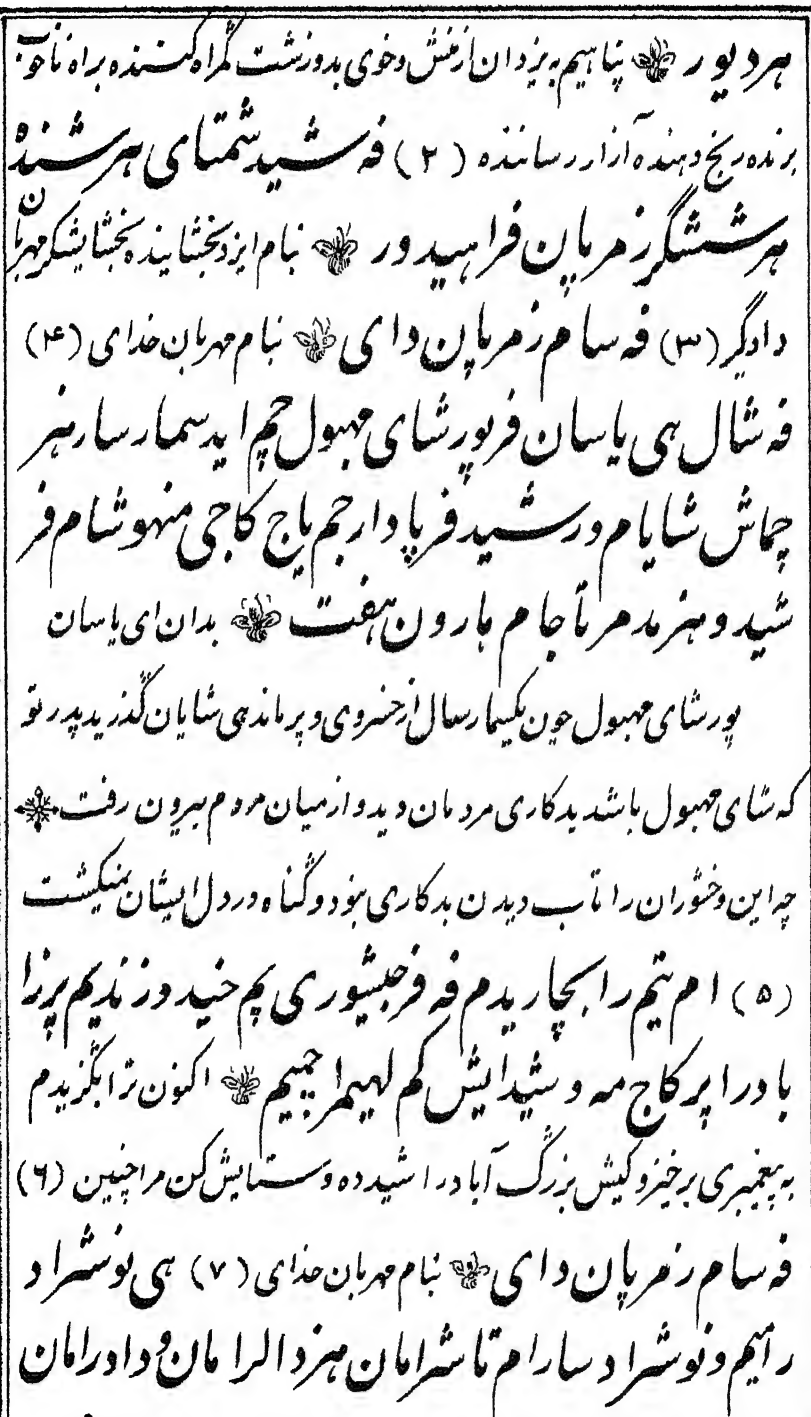 هردیور پناهیم به یزدان از منش و خوی بد و زشت گمراه کننده براه ناخوب
برنده رنج دهنده آزار رساننده (۲) فه شید شمتای هر شنده
هر ششگر زمرپان فراهیدور بنام ایزد بخشاینده بخشایشگر مهربان
دادگر (۳) فه سام زمرپان دای بنام مهربان خدای (۴)
فه شال هی یاسان فرپور شای مهبول چم اید سمار سار هنر
چماش شایام ورشید فرپادار جم یاج کاجی منهوشام فر
شید و هنر مدمر تاجام هارون هفت بدان ای یاسان
پور شای مهبول چون یکسمار سال از خسروی و پرماندهی شایان گذرید پدر تو
که شای مهبول باشد بدکاری مردمان دید و از میان مردم بیرون رفت
چه این وخشوران را تاب دیدن بدکاری نبود و گناه در دل ایشان نمیگشت
(۵) ام یتم را بچاریدم فه فرجیشوری پم خید و زندیم پرزا
بادرا پر کاج مه و شیدایش کم لهیمرا چمیم اکنون ترا بگزیدم
به پیغمبری برخیز و کیش بزرگ آباد را شید ده و ستایش کن مرا چنین (۶)
فه سام زمرپان دای بنام مهربان خدای (۷) هی نوشراد
رامیم و نوشراد سارام تاشرامان هزدالرامان و دادرامان